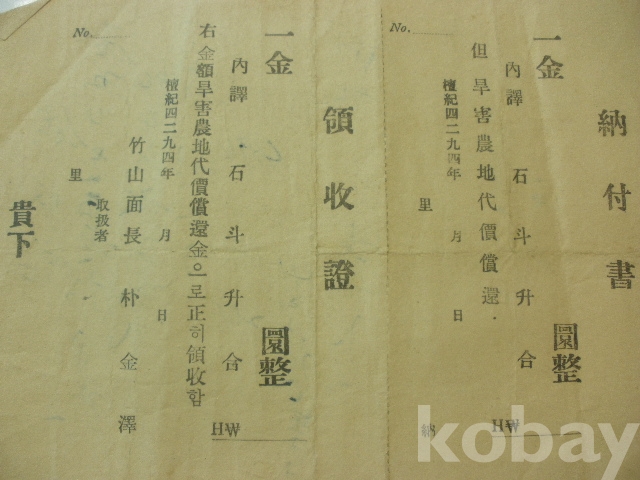 納付書
No.
一金 圜整
內譯 石斗升合 HW
但 旱害農地代價償還.
檀紀四二九四年 月 日
里
領收證
No.
一金 圜整
內譯 石斗升合 HW
右金額旱害農地代價償還金으로正히領收함
檀紀四二九四年 月 日
竹山面長 朴金澤
取扱者
里
貴下
kobay